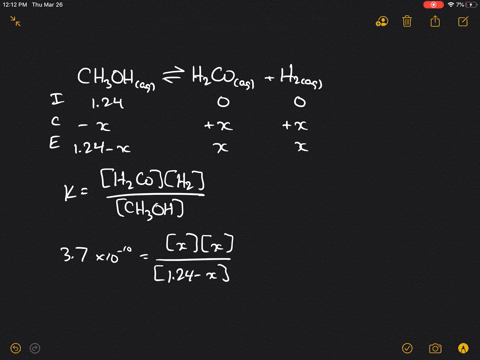 12:12 PM Thu Mar 26
7%
CH₃OH(aq) ⇌ H₂Co(aq) + H₂(aq)
I 1.24 0 0
C - x +x +x
E 1.24-x x x
K = [H₂Co][H₂] / [CH₃OH]
3.7 ×10⁻¹⁰ = [x][x] / [1.24-x]